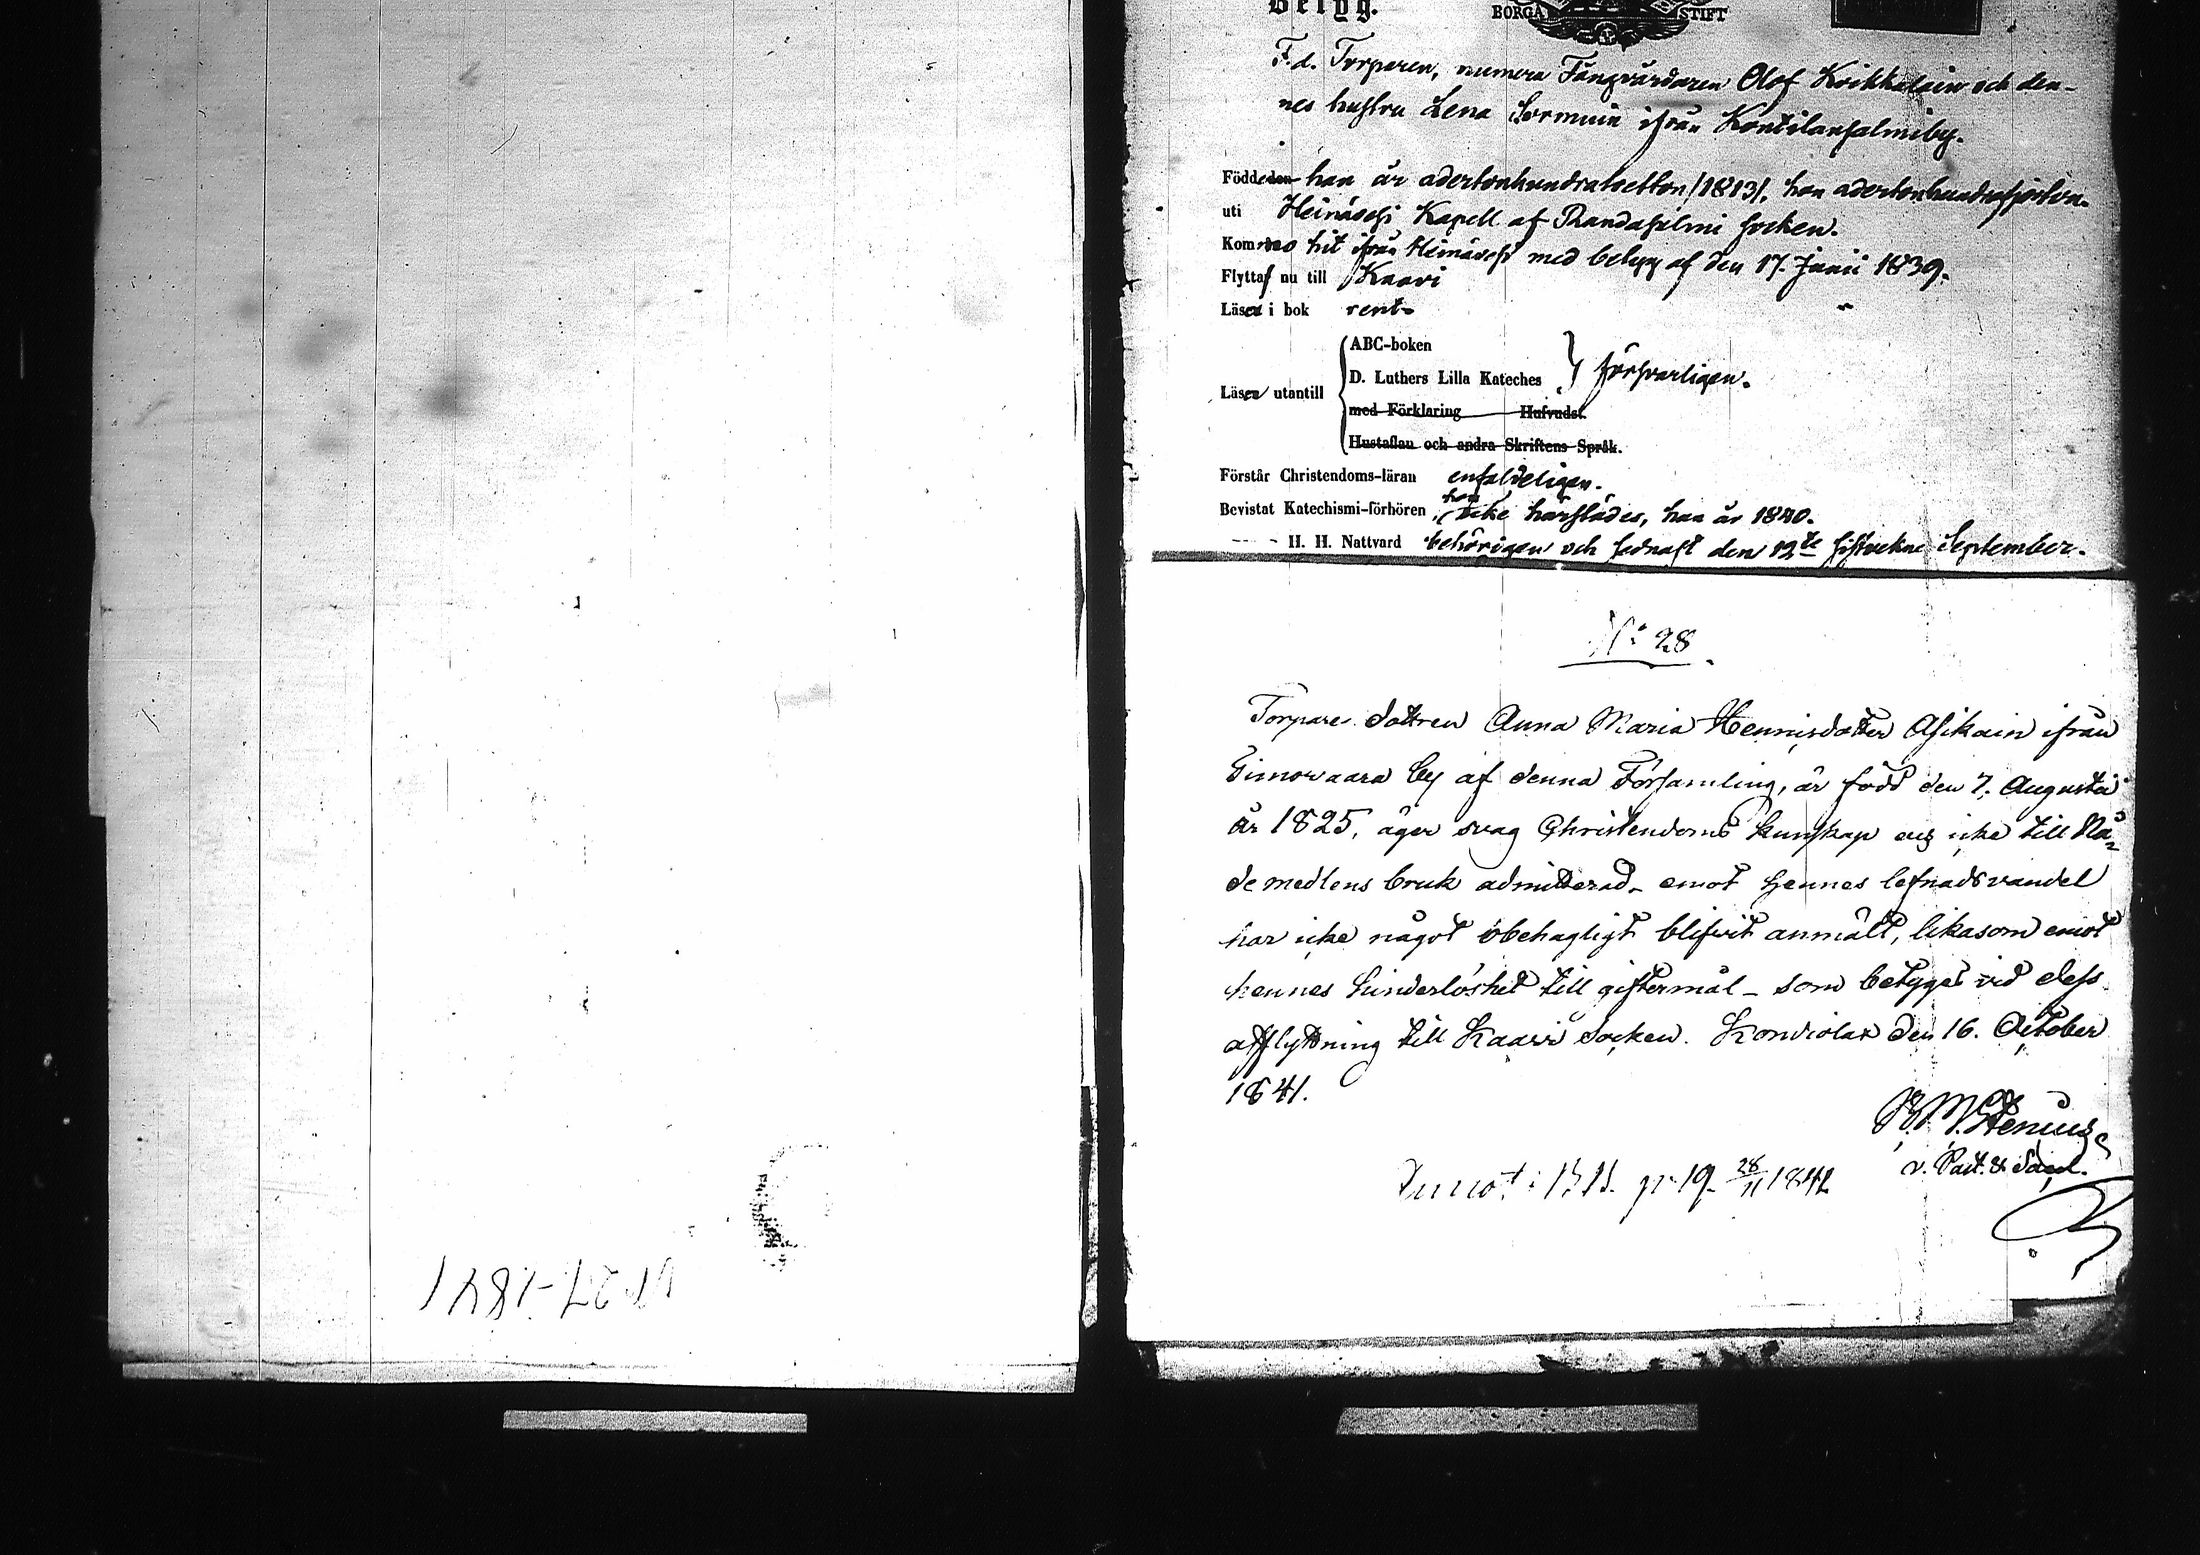 Betyg.
BORGÅ STIFT
F. d. Torparen, numera Fångvårdaren Olof Koikkalain och den-
nes hustru Lena Sormuin ifrån Kontilansalmi by.
Födde den han år adertonhundratretton /1813/, hon adertonhundrafjorton
uti Heinävesi Kapell af Randasalmi socken.
Komne hit ifrån Heinävesi med betyg af den 17. Junii 1839.
Flytta nu till Kaavi
Läsa i bok rent.
ABC-boken
D. Luthers Lilla Kateches
försvarligen.
Läsa utantill
med Förklaring Hufvudst.
Hustaflan och andra Skriftens Språk.
Förstår Christendoms-läran enfaldeligen.
Bevistat Katechismi-förhören hon icke härstädes, han år 1840.
H. H. Nattvard behörigen och sednast den 12te sistvekne September.
N:o 28
Torpare dottren Anna Maria Hennisdotter Asikain ifrån
Timovaara by af denna Församling, är född den 7. Augusti
år 1825, äger svag Christendoms kunskap och icke till Nå-
demedlens bruk admitterad - emot hennes lefnadsvandel
har icke något obehagligt blifvit anmält, likasom emot
hennes hinderlöshet till giftermål - som betygas vid dess
afflyttning till Kaavi Socken. Kondiolax den 16. October
1841.
Stenius
v. Past. &
19 28/11 1841
N:o 27-1841